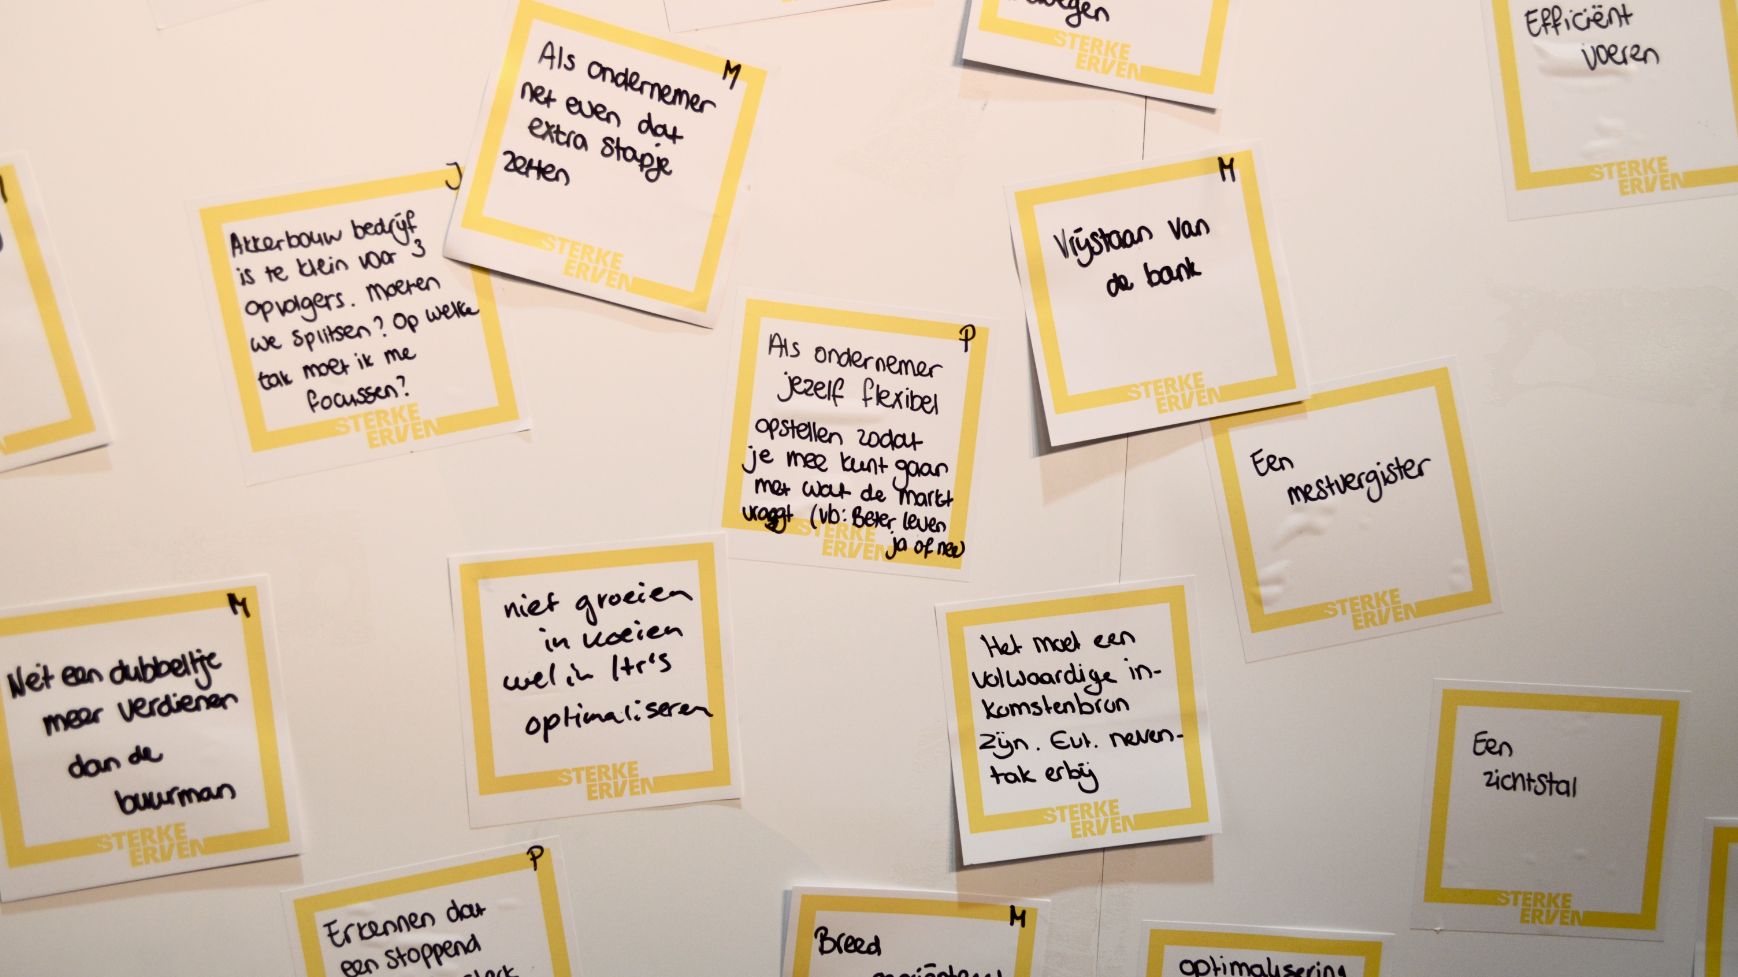 Als ondernemer
net even dat
extra stapje
zetten
M
STERKE
ERVEN
STERKE
ERVEN
Efficiënt
voeren
STERKE
ERVEN
J
Akkerbouw bedrijf
is te klein voor 3
opvolgers. Moeten
we splitsen? Op welke
tak moet ik me
focussen?
STERKE
ERVEN
M
Vrijstaan van
de bank
STERKE
ERVEN
P
Als ondernemer
jezelf flexibel
opstellen zodat
je mee kunt gaan
met wat de markt
vraagt (vb: Beter leven
ja of nee)
STERKE
ERVEN
Een
mestvergister
STERKE
ERVEN
M
Net een dubbeltje
meer verdienen
dan de
buurman
STERKE
ERVEN
niet groeien
in koeien
wel in ltr's
optimaliseren
STERKE
ERVEN
Het moet een
volwaardige in-
komstenbron
zijn. Evt. neven-
tak erbij
STERKE
ERVEN
Een
zichtstal
STERKE
ERVEN
P
Erkennen dat
een stoppend
M
Breed
optimalisering